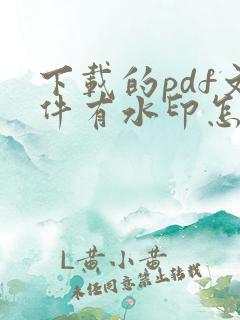 下载的pdf文
件有水印怎
L黄小黄
未经同意禁止转载